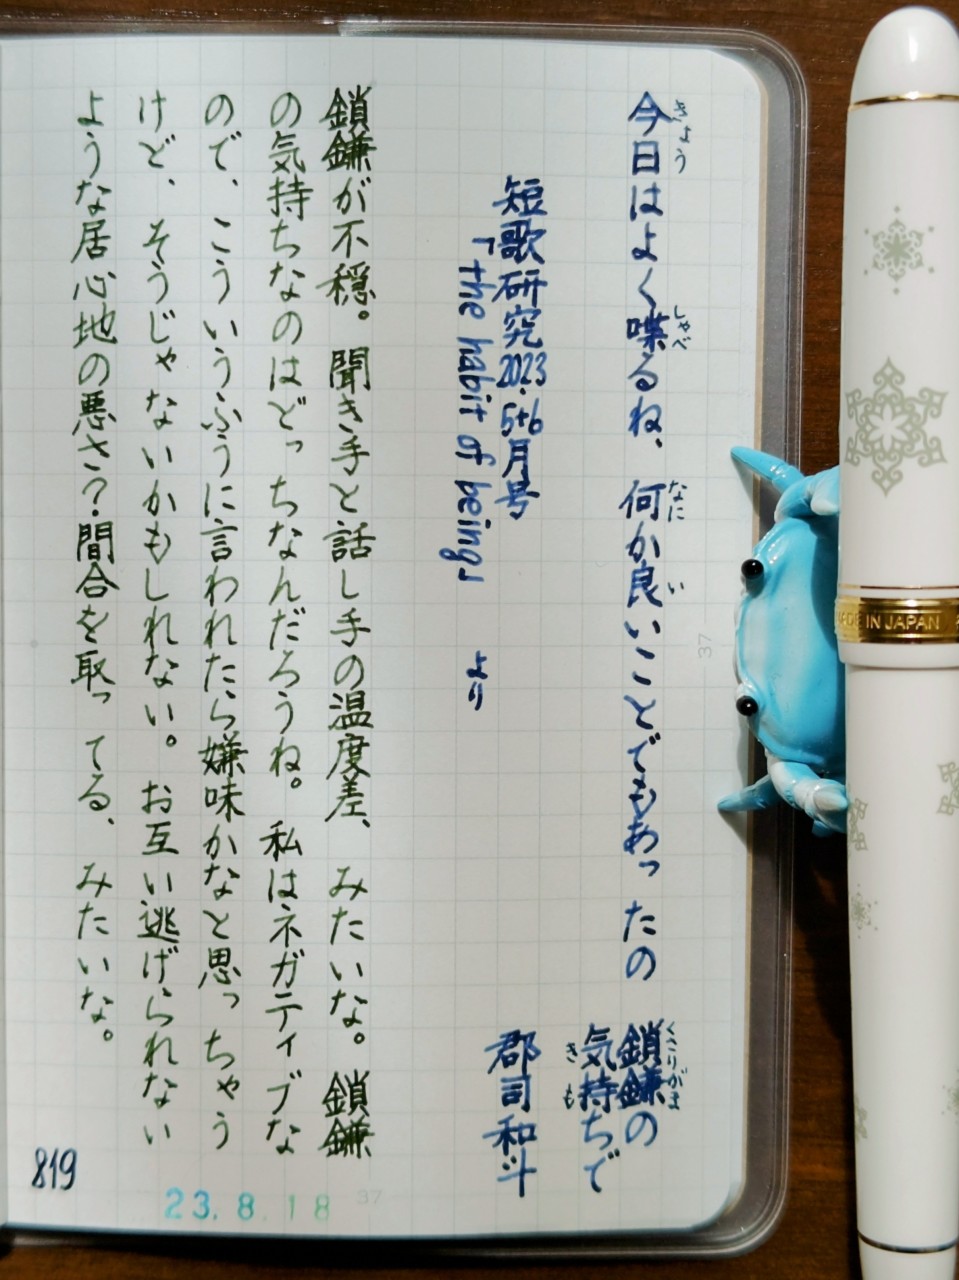 今日はよく喋るね、何か良いことでもあったの 鎖鎌の
気持ちで
きょう
しゃべ
なに
い
くさりがま
きも
短歌研究2023.5+6月号
「the habit of being」 より
郡司和斗
鎖鎌が不穏。聞き手と話し手の温度差、みたいな。鎖鎌
の気持ちなのはどっちなんだろうね。私はネガティブな
ので、こういうふうに言われたら嫌味かなと思っちゃう
けど、そうじゃないかもしれない。お互い逃げられない
ような居心地の悪さ?間合を取ってる、みたいな。
819
23.8.18
37
37
MADE IN JAPAN